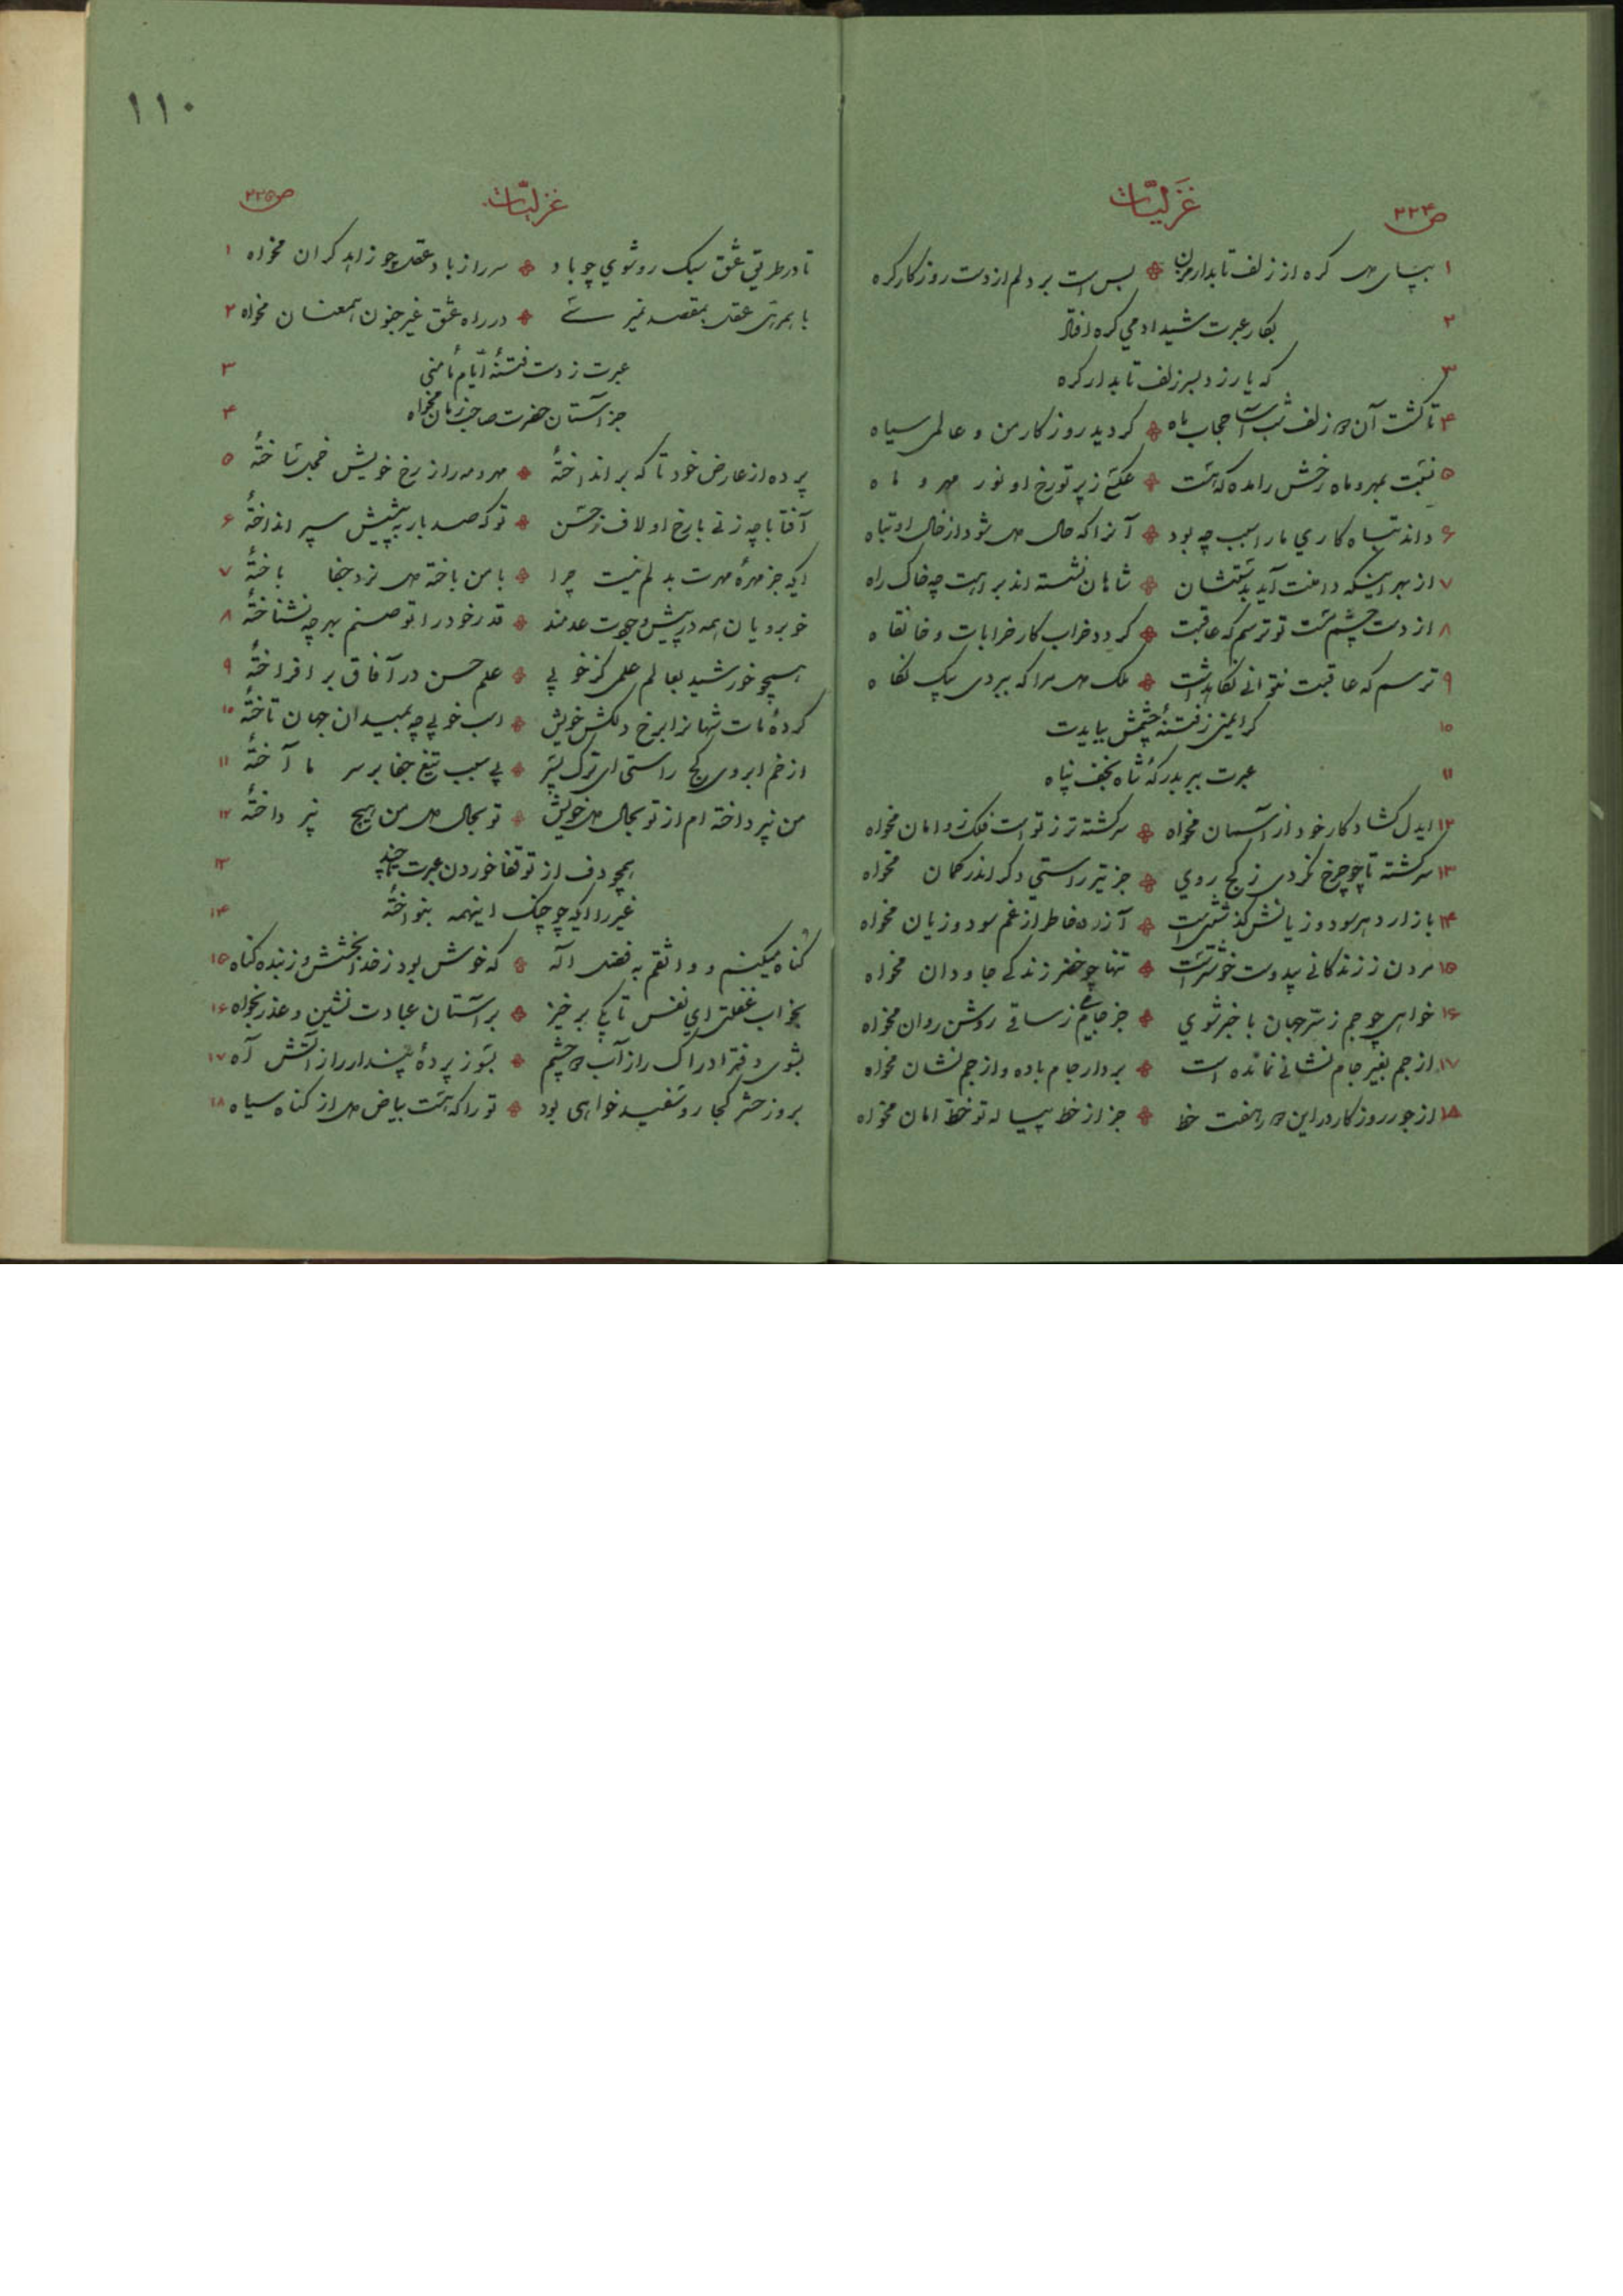 ص۲۲۴
غَزلیّات
۱ بپای دل گره از زلف تابدار مزن ❋ بس است بر دلم از دست روزگار گره
۲ بکار عبرت شیدا دمی گره افتاد
۳ که یار زد بسر زلف تابدار گره
۴ تا گشت آن دو زلف شب آسا حجاب ماه ❋ گردید روزگار من و عالمی سیاه
۵ نسبت بمهر و ماه رخش را مده که هست ❋ عکسی ز پرتو رخ او نور مهر و ماه
۶ داند تباه کاری ما را سبب چه بود ❋ آنرا که حال دل شود از خال او تباه
۷ از بهر اینکه دامنت آید بدستشان ❋ شاهان نشسته اند براهت چه خاک راه
۸ از دست چشم مست تو ترسم که عاقبت ❋ گردد خراب کار خرابات و خانقاه
۹ ترسم که عاقبت نتوانی نگاهداشت ❋ ملک دل مرا که ببردی بیک نگاه
۱۰ گر ایمنی ز فتنهٔ چشمش ببایدت
۱۱ عبرت ببر بدرگهٔ شاه نجف پناه
۱۲ ایدل گشاد کار خود از آسمان مخواه ❋ سرگشته تر ز تو است فلک زو امان مخواه
۱۳ سرگشته تا چو چرخ نگردی ز کج روی ❋ جز تیر راستی دگر اندر کمان مخواه
۱۴ بازار دهر سود و زیانش گذشتنی است ❋ آزرده خاطر از غم سود و زیان مخواه
۱۵ مردن ز زندگانی بیدوست خوشتر است ❋ تنها چو خضر زندگی جاودان مخواه
۱۶ خواهی چو جم ز سرّ جهان با خبر شوی ❋ جز جام می ز ساقی روشن روان مخواه
۱۷ از جم بغیر جام نشانی نمانده است ❋ بردار جام باده و از جم نشان مخواه
۱۸ از جور روزگار در این دور هفت خط ❋ جز از خط پیاله تو خطّ امان مخواه
۱۱۰
غزلیّات
ص۲۲۵
تا در طریق عشق سبک رو شوی چو باد ❋ سر را ز باد عقل چو زاهد گران مخواه ۱
با همرهی عقل بمقصد نمیرسی ❋ در راه عشق غیر جنون همعنان مخواه ۲
عبرت ز دست فتنهٔ ایّام مأمنی ۳
جز آستان حضرت صاحب زمان مخواه ۴
پرده از عارض خود تا که برانداختهٔ ❋ مهر و مه را ز رخ خویش خجل ساختهٔ ۵
آفتابا چه زنی با رخ او لاف ز حسن ❋ تو که صد بار به پیشش سپر انداختهٔ ۶
ایکه جز مهرهٔ مهرت بدلم نیست چرا ❋ با من باخته دل نرد جفا باختهٔ ۷
خوبرویان همه در پیش وجودت عدمند ❋ قدر خود را تو صنم بهر چه نشناختهٔ ۸
همچو خورشید بعالم علمی کز خوبی ❋ علم حسن در آفاق بر افراختهٔ ۹
کردهٔ مات شهانرا برخ دلکش خویش ❋ اسب خوبی چه بمیدان جهان تاختهٔ ۱۰
از خم ابروی کج راستی ای ترک پسر ❋ بی سبب تیغ جفا بر سر ما آختهٔ ۱۱
من نپرداخته ام از تو بحال دل خویش ❋ تو بحال دل من هیچ نپرداختهٔ ۱۲
همچو دف از تو قفا خوردن عبرت تا چند ۱۳
غیر را ایکه چو چنگ اینهمه بنواختهٔ ۱۴
گناه میکنم و واثقم به فضل اله ❋ که خوش بود ز خدا بخشش و ز بنده گناه ۱۵
بخواب غفلتی ای نفس تا بکی برخیز ❋ بر آستان عبادت نشین و عذر بخواه ۱۶
بشوی دفتر ادراک را ز آب دو چشم ❋ بسوز پردهٔ پندار را ز آتش آه ۱۷
بروز حشر کجا رو سفید خواهی بود ❋ تو را که هست بیاض دل از گناه سیاه ۱۸